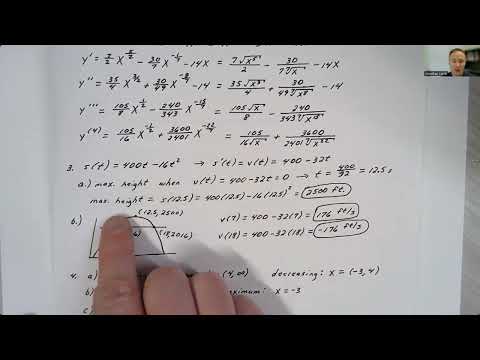 y' = 7/2 x^(5/2) - 30/7 x^(-1/7) - 14x = 7√x⁵/2 - 30/(7 ⁷√x) - 14x
y'' = 35/4 x^(3/2) + 30/49 x^(-8/7) - 14 = 35√x³/4 + 30/(49 ⁷√x⁸) - 14
y''' = 105/8 x^(1/2) - 240/343 x^(-15/7) = 105√x/8 - 240/(343 ⁷√x¹⁵)
y⁽⁴⁾ = 105/16 x^(-1/2) + 3600/2401 x^(-22/7) = 105/(16√x) + 3600/(2401 ⁷√x²²)
3. s(t) = 400t - 16t² → s'(t) = v(t) = 400 - 32t
a.) max. height when v(t) = 400 - 32t = 0 → t = 400/32 = 12.5 s
max. height = s(12.5) = 400(12.5) - 16(12.5)² = 2500 ft.
b.) (12.5, 2500) v(7) = 400 - 32(7) = 176 ft/s
(18, 2016) v(18) = 400 - 32(18) = -176 ft/s
4. a) (4, ∞) decreasing: x = (-3, 4)
b) maximum: x = -3
c)